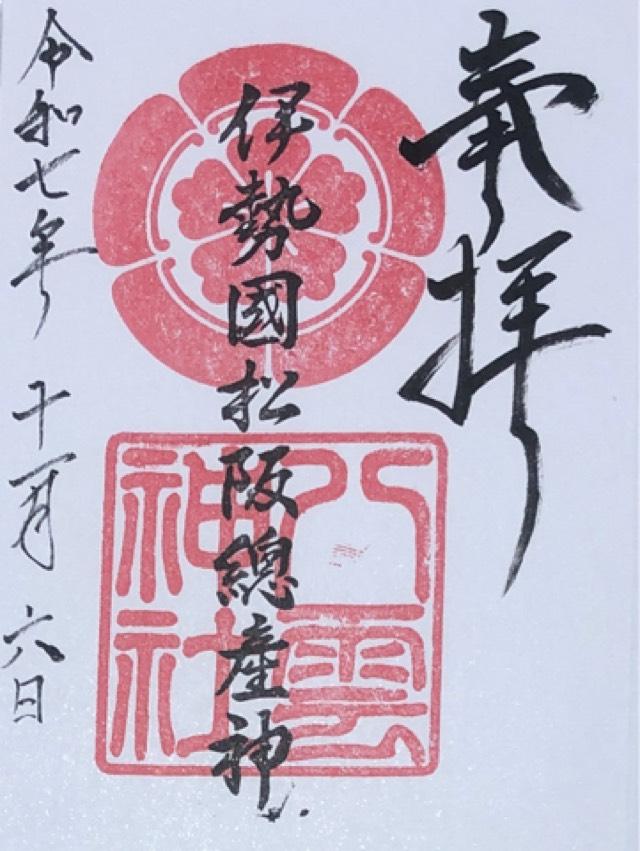 奉拝
伊勢國松阪總産神
八雲神社
令和七年十一月六日